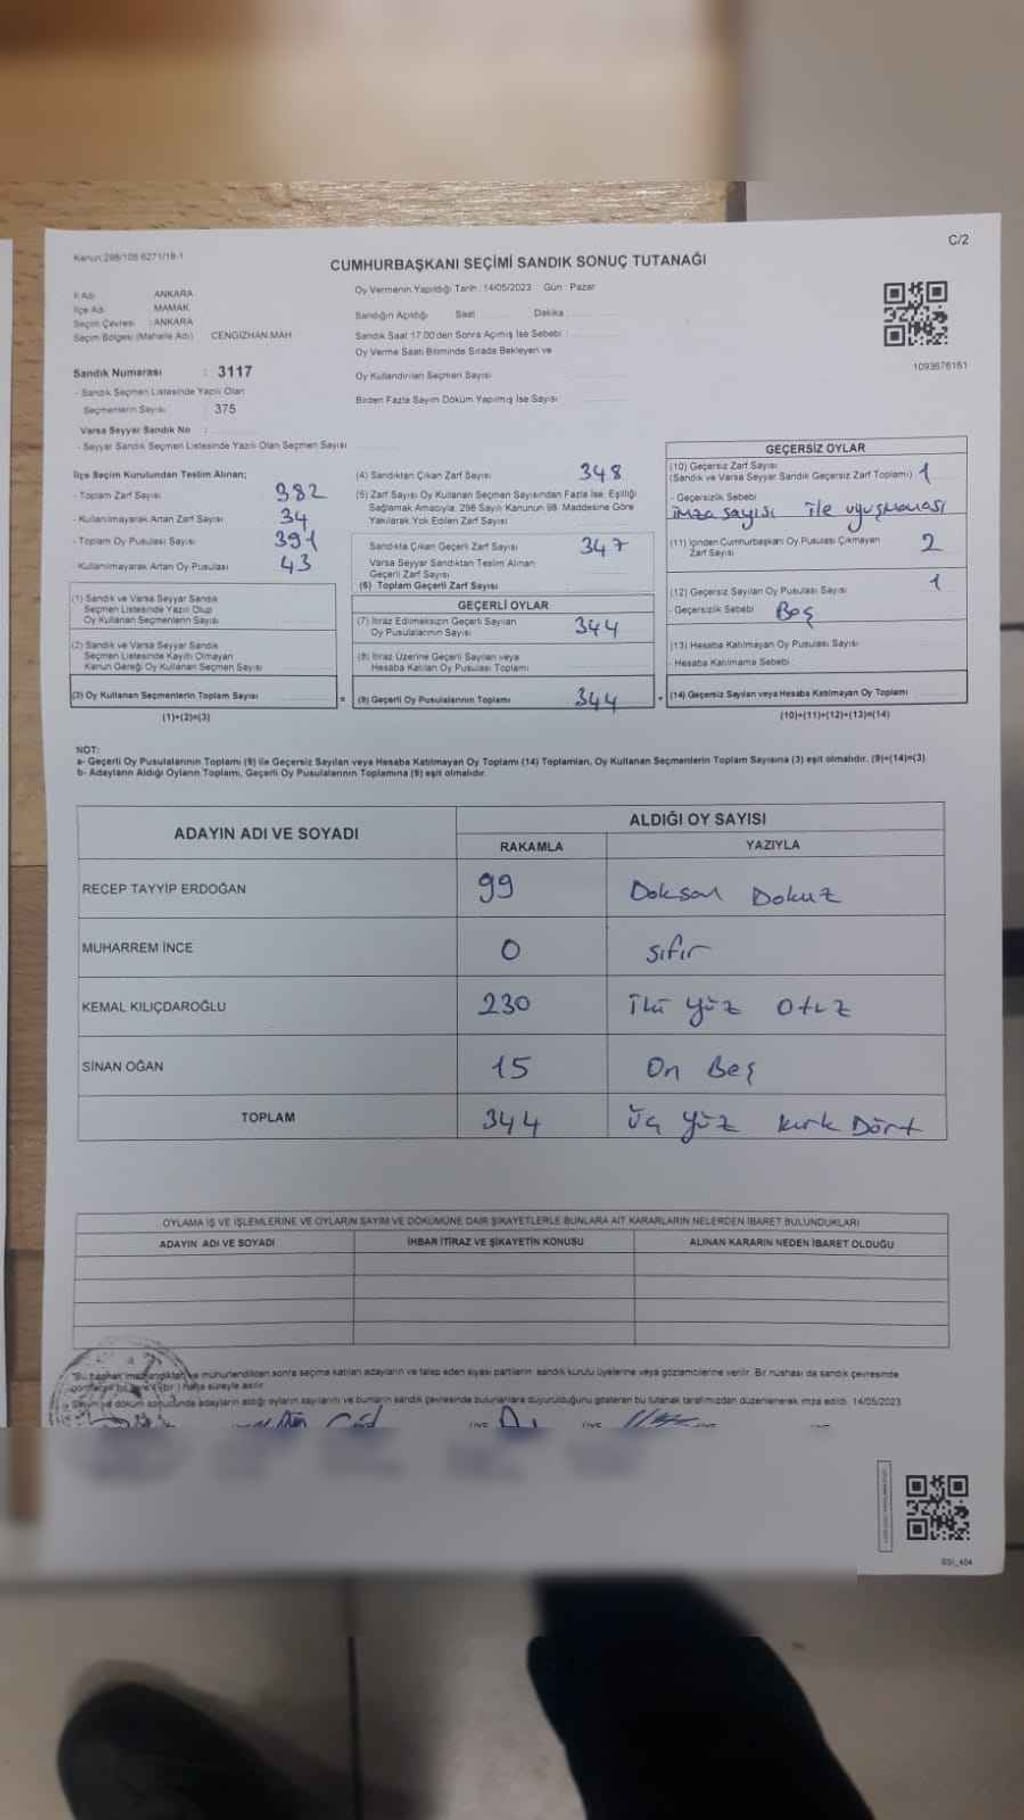 C/2
Kanun:298/105 6271/18-1
CUMHURBAŞKANI SEÇİMİ SANDIK SONUÇ TUTANAĞI
İl Adı ANKARA
İlçe Adı MAMAK
Seçim Çevresi : ANKARA
Seçim Bölgesi (Mahalle Adı) CENGİZHAN MAH
Sandık Numarası : 3117
- Sandık Seçmen Listesinde Yazılı Olan
Seçmenlerin Sayısı : 375
Varsa Seyyar Sandık No :
- Seyyar Sandık Seçmen Listesinde Yazılı Olan Seçmen Sayısı
Oy Vermenin Yapıldığı Tarih : 14/05/2023 Gün : Pazar
Sandığın Açıldığı Saat Dakika
Sandık Saat 17.00'den Sonra Açılmış İse Sebebi :
Oy Verme Saati Bitiminde Sırada Bekleyen ve
Oy Kullandırılan Seçmen Sayısı
Birden Fazla Sayım Döküm Yapılmış İse Sayısı
1093676161
İlçe Seçim Kurulundan Teslim Alınan;
- Toplam Zarf Sayısı 382
- Kullanılmayarak Artan Zarf Sayısı 34
- Toplam Oy Pusulası Sayısı 391
Kullanılmayarak Artan Oy Pusulası 43
(1) Sandık ve Varsa Seyyar Sandık
Seçmen Listesinde Yazılı Olup
Oy Kullanan Seçmenlerin Sayısı
(2) Sandık ve Varsa Seyyar Sandık
Seçmen Listesinde Kayıtlı Olmayan
Kanun Gereği Oy Kullanan Seçmen Sayısı
(3) Oy Kullanan Seçmenlerin Toplam Sayısı
(1)+(2)=(3)
(4) Sandıktan Çıkan Zarf Sayısı 348
(5) Zarf Sayısı Oy Kullanan Seçmen Sayısından Fazla İse, Eşitliği
Sağlamak Amacıyla, 298 Sayılı Kanunun 98. Maddesine Göre
Yakılarak Yok Edilen Zarf Sayısı
Sandıkta Çıkan Geçerli Zarf Sayısı 347
Varsa Seyyar Sandıktan Teslim Alınan
Geçerli Zarf Sayısı
(6) Toplam Geçerli Zarf Sayısı
GEÇERLİ OYLAR
(7) İtiraz Edilmeksizin Geçerli Sayılan
Oy Pusulalarının Sayısı 344
(8) İtiraz Üzerine Geçerli Sayılan veya
Hesaba Katılan Oy Pusulası Toplamı
= (9) Geçerli Oy Pusulalarının Toplamı 344 +
GEÇERSİZ OYLAR
(10) Geçersiz Zarf Sayısı
(Sandık ve Varsa Seyyar Sandık Geçersiz Zarf Toplamı) 1
- Geçersizlik Sebebi
imza sayısı ile uyuşmaması
(11) İçinden Cumhurbaşkanı Oy Pusulası Çıkmayan
Zarf Sayısı 2
(12) Geçersiz Sayılan Oy Pusulası Sayısı 1
- Geçersizlik Sebebi Boş
(13) Hesaba Katılmayan Oy Pusulası Sayısı
- Hesaba Katılmama Sebebi
(14) Geçersiz Sayılan veya Hesaba Katılmayan Oy Toplamı
(10)+(11)+(12)+(13)=(14)
NOT:
a- Geçerli Oy Pusulalarının Toplamı (9) ile Geçersiz Sayılan veya Hesaba Katılmayan Oy Toplamı (14) Toplamları, Oy Kullanan Seçmenlerin Toplam Sayısına (3) eşit olmalıdır. (9)+(14)=(3)
b- Adayların Aldığı Oyların Toplamı, Geçerli Oy Pusulalarının Toplamına (9) eşit olmalıdır.
ADAYIN ADI VE SOYADI ALDIĞI OY SAYISI
RAKAMLA YAZIYLA
RECEP TAYYİP ERDOĞAN 99 Doksan Dokuz
MUHARREM İNCE 0 sıfır
KEMAL KILIÇDAROĞLU 230 İki yüz Otuz
SİNAN OĞAN 15 On Beş
TOPLAM 344 Üç yüz kırk Dört
OYLAMA İŞ VE İŞLEMLERİNE VE OYLARIN SAYIM VE DÖKÜMÜNE DAİR ŞİKAYETLERLE BUNLARA AİT KARARLARIN NELERDEN İBARET BULUNDUKLARI
ADAYIN ADI VE SOYADI İHBAR İTİRAZ VE ŞİKAYETİN KONUSU ALINAN KARARIN NEDEN İBARET OLDUĞU
mühürlendikten sonra seçime katılan adayların ve talep eden siyasi partilerin sandık kurulu üyelerine veya gözlemcilerine verilir. Bir nüshası da sandık çevresinde
hafta süreyle asılır.
Sayım ve döküm sonucunda adayların aldığı oyların sayılarını ve bunların sandık çevresinde bulunanlara duyurulduğunu gösteren bu tutanak tarafımızdan düzenlenerek imza edildi. 14/05/2023
SSI_404